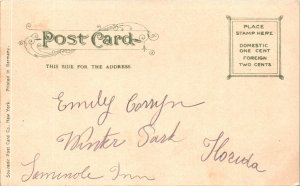 POST CARD
THIS SIDE FOR THE ADDRESS.
PLACE
STAMP HERE
DOMESTIC
ONE CENT
FOREIGN
TWO CENTS
Souvenir Post Card Co., New York. Printed in Germany.
Emily Corryn
Winter Park
Florida
Seminole Inn